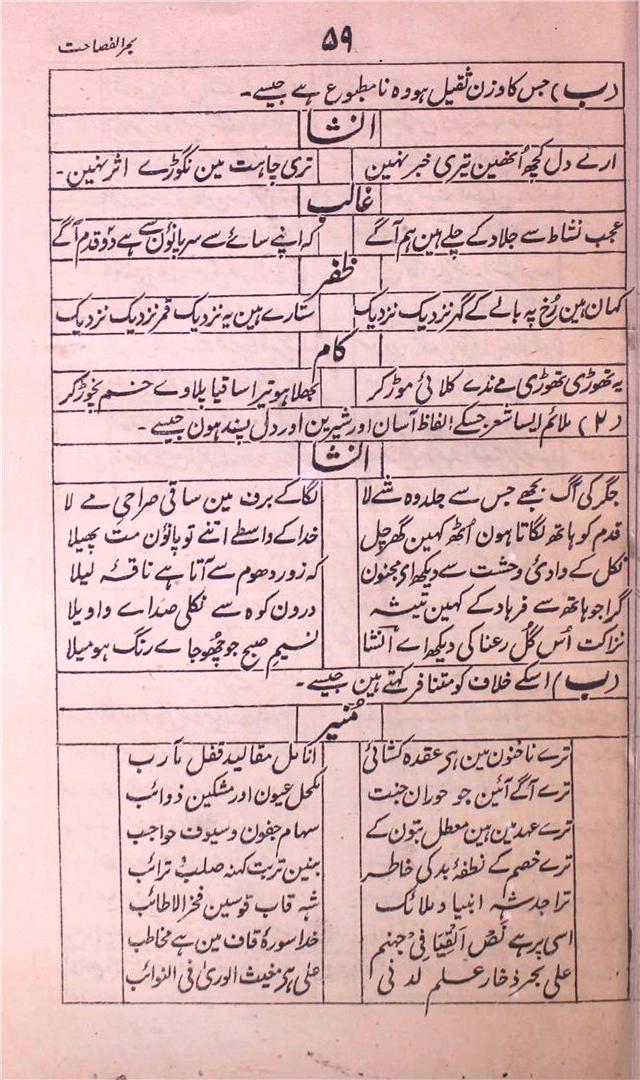 بحرالفصاحت ۵۹
(ب) جس کا وزن ثقیل ہو وہ نامطبوع ہے جیسے۔
انشا
ارے دل کچھ اُنھین تیری خبر نہین تری چاہت مین نگوڑے اثر نہین۔
غالب
عجب نشاط سے جلاد کے چلے ہین ہم آگے کہ اپنے سائے سے سر پاؤن سے ہے دو قدم آگے
ظفر
کہان ہین رُخ پہ بالے کے گہر نزدیک نزدیک ستارے ہین یہ نزدیک قمر نزدیک نزدیک
کام
یہ تھوڑی تھوڑی مے ندے کلائی موڑ کر بھلا ہو تیرا ساقیا پلاوے خم نچوڑ کر
(۲) ملائم ایسا شعر جسکے الفاظ آسان اور شیرین اور دل پسند ہون جیسے۔
انشا
جگر کی آگ بجھے جس سے جلد وہ شے لا لگا کے برف مین ساقی صراحیِ مے لا
قدم کو ہاتھ لگاتا ہون اُٹھ کہین گھر چل خدا کے واسطے اتنے تو پاؤن مت پھیلا
نکل کے وادیٔ وحشت سے دیکھ ای مجنون کہ زور دھوم سے آتا ہے ناقۂ لیلا
گرا جو ہاتھ سے فرہاد کے کہین تیشہ درون کوہ سے نکلی صداے واویلا
نزاکت اُس گُل رعنا کی دیکھ اے انشا نسیمِ صبح جو چھو جاے رنگ ہو میلا
(ب) اسکے خلاف کو متنافر کہتے ہین جیسے۔
مُنیر
ترے ناخنون مین ہی عقدہ کشائی انامل مقالید قفل مآرب
ترے آگے آئین جو حوران جنت مکحل عیون اور مشکین ذوائب
ترے عہد مین ہین معطل بتون کے سہام جفون و سیوف حواجب
ترے خصم کے نطفۂ بد کی خاطر ببنین تربت کہنہ صلب و ترائب
ترا جد شہ انبیا و ملائک شہ قاب قوسین فخر الاطائب
اسی پر ہے نَص اَلقِیَا فِی جہنم خدا سورۂ قاف مین ہے مخاطب
علی بحر ذخار علم لدنی علی ہی مغیث الوریٰ فی النوائب